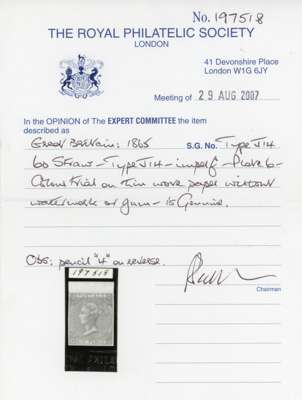 No. 197518
THE ROYAL PHILATELIC SOCIETY
LONDON
41 Devonshire Place
London W1G 6JY
Meeting of 29 AUG 2007
In the OPINION of The EXPERT COMMITTEE the item
described as
Great Britain: 1865 S.G. No. Type J14
Straw - Type J14 - imperf - Plate 6 -
Colour trial on thin wove paper without
watermark or gum - is Genuine.
Obs: pencil "4" on reverse.
Chairman
197518